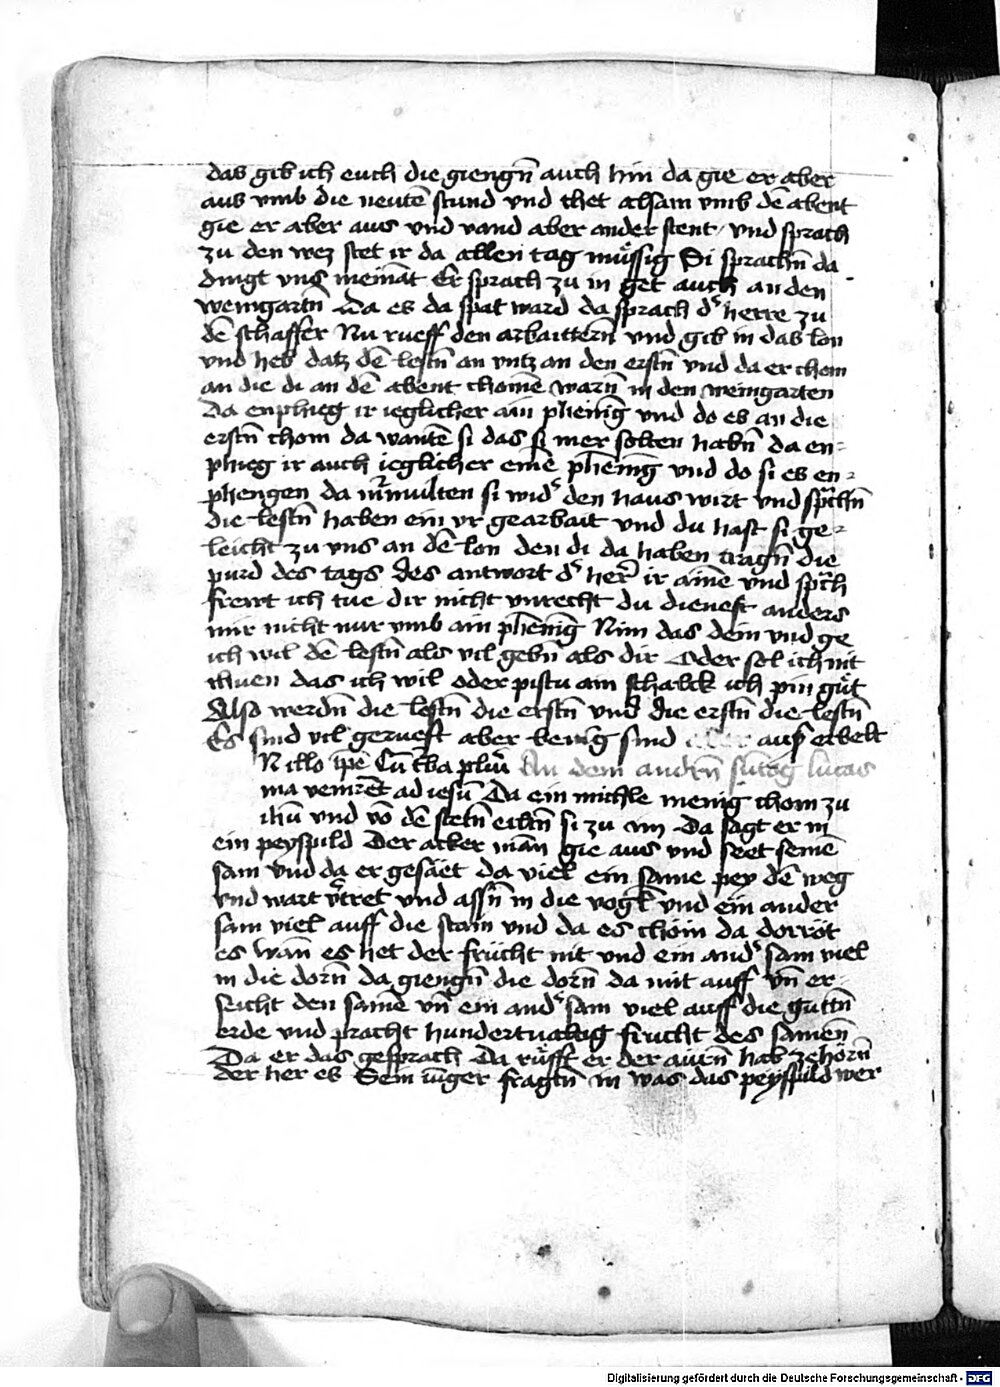 das gib ich euch die giengn̄ auch hin da gie er aber
aus vmb die neutē stund vnd thet alsam vmb dē abent
gie er aber aus vnd vand aber ander stent vnd sprach
zu den wez stet ir da allen tag müssig Si sprachn̄ da
dingt vns niemāt Er sprach zu in get auch an den
weingartn̄ Da es da spat ward da sprach dˢ herre zu
dē schaffer Nu rueff den arbaittern̄ vnd gib in das lon
vnd heb datz dē lestn̄ an vntz an den erstn̄ vnd da er chom
an die di an dē abent chomē warn̄ in den weingarten
Da enphieg ir ieglicher ain phenīg vnd do es an die
erstn̄ chom da wantē si das si mer solten habn̄ da en=
phieg ir auch ieglicher einē phenīg vnd do si es en=
phengen da murmulten si widˢ den haus wirt vnd sprachn̄
die lestn̄ haben ein vr gearbait vnd du hast si ge=
leicht zu vns an dē lon den di da haben tragn̄ die
purd des tags des antwort dˢ her ir ainē vnd sprach
frewt ich tue dir nicht vnrecht du dienest anders
mir nicht nur vmb ain phenīg Nim das dein vnd ge
ich wil dē lestn̄ als vil gebn̄ als dir Oder sol ich nit
thuen das ich wil oder pistu ain schalck ich pin güt
Also werdn̄ die lestn̄ die erstn̄ vnd die erstn̄ die lestn̄
Es sind vil gerueft aber wenig sind aber auß erbelt
N illo tpē Cū t̄ba plim̄ An dem andrn̄ sūtag lucas
ma venir̄et ad iesū Da ein michle menig chom zu
ihū vnd vō dē stetn̄ eiltn̄ si zu im Da sagt er in
ein peyspild Der acker man gie aus vnd seet seinē
sam vnd da er gesäet da viel ein same pey dē weg
vnd wart v̄tret vnd assn̄ in die vogel vnd ein ander
sam viel auff die stain vnd da es chom da dorröt
es wan̄ es het der früicht nit vnd ein andˢ sam viel
in die dorn̄ da giengn̄ die dorn̄ da mit auff vn̄ er
sticht den samē vn̄ ein andˢ sam viel auff die guttn̄
erde vnd pracht hundertualtig frucht des samen̄
Da er das gesprach Da rüfft er der auren̄ hab zehörn̄
der her es Sein iūger fragtn̄ in was das peyspild wer
Digitalisierung gefördert durch die Deutsche Forschungsgemeinschaft - DFG